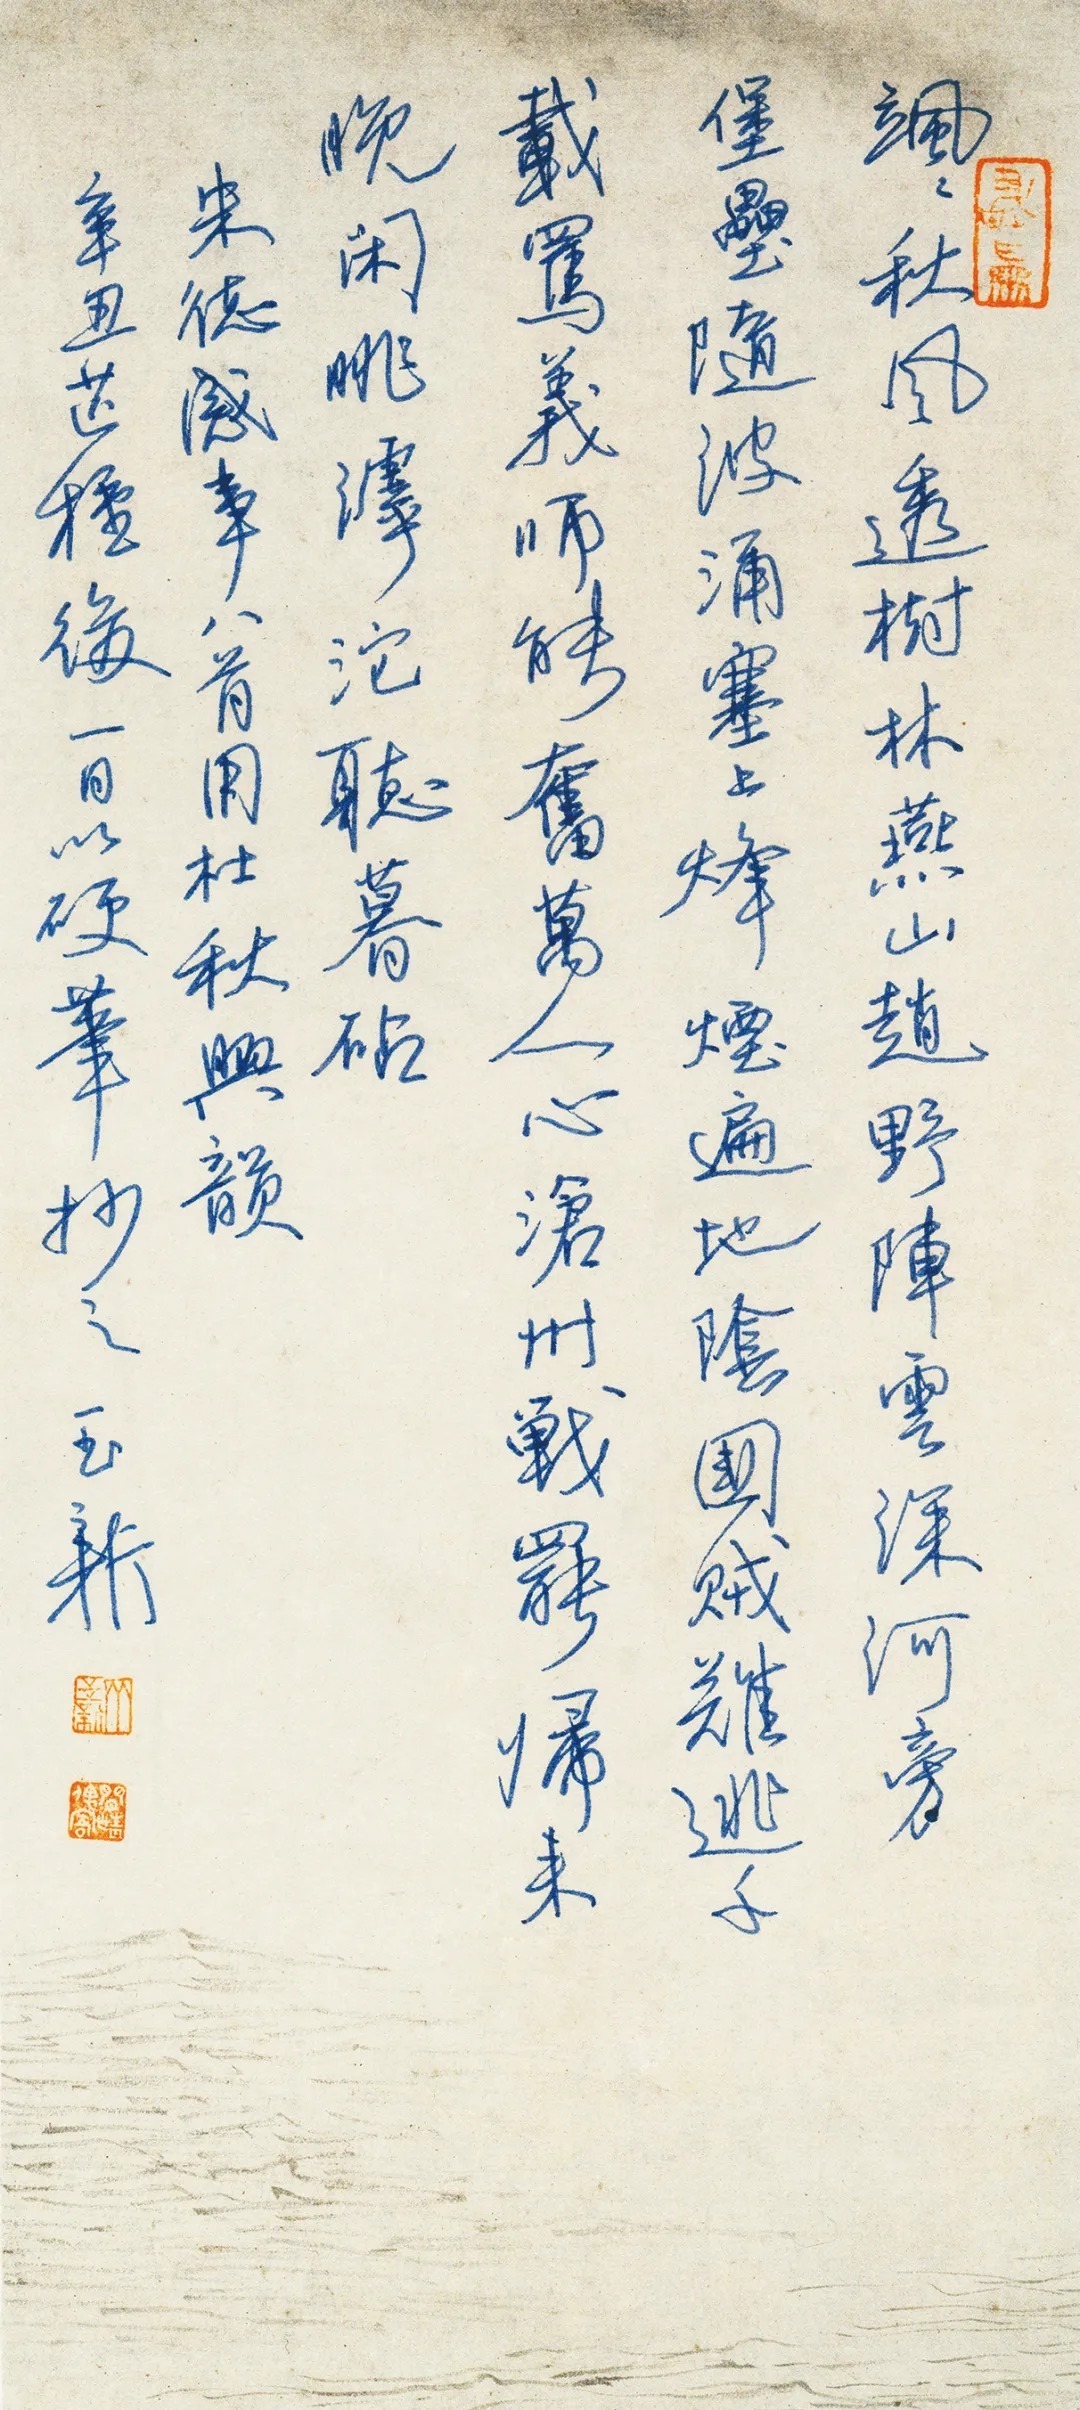 飒〻秋风透樹林燕山趙野陣雲深河旁
堡壘隨波涌塞上烽煙遍地陰國賊難逃千
載罵義师能奮萬人心滄州戰罷歸来
晚闲眺滹沱聽暮砧
朱德感事八首用杜秋興韻
辛丑芒種後一日以硬筆抄之 玉新